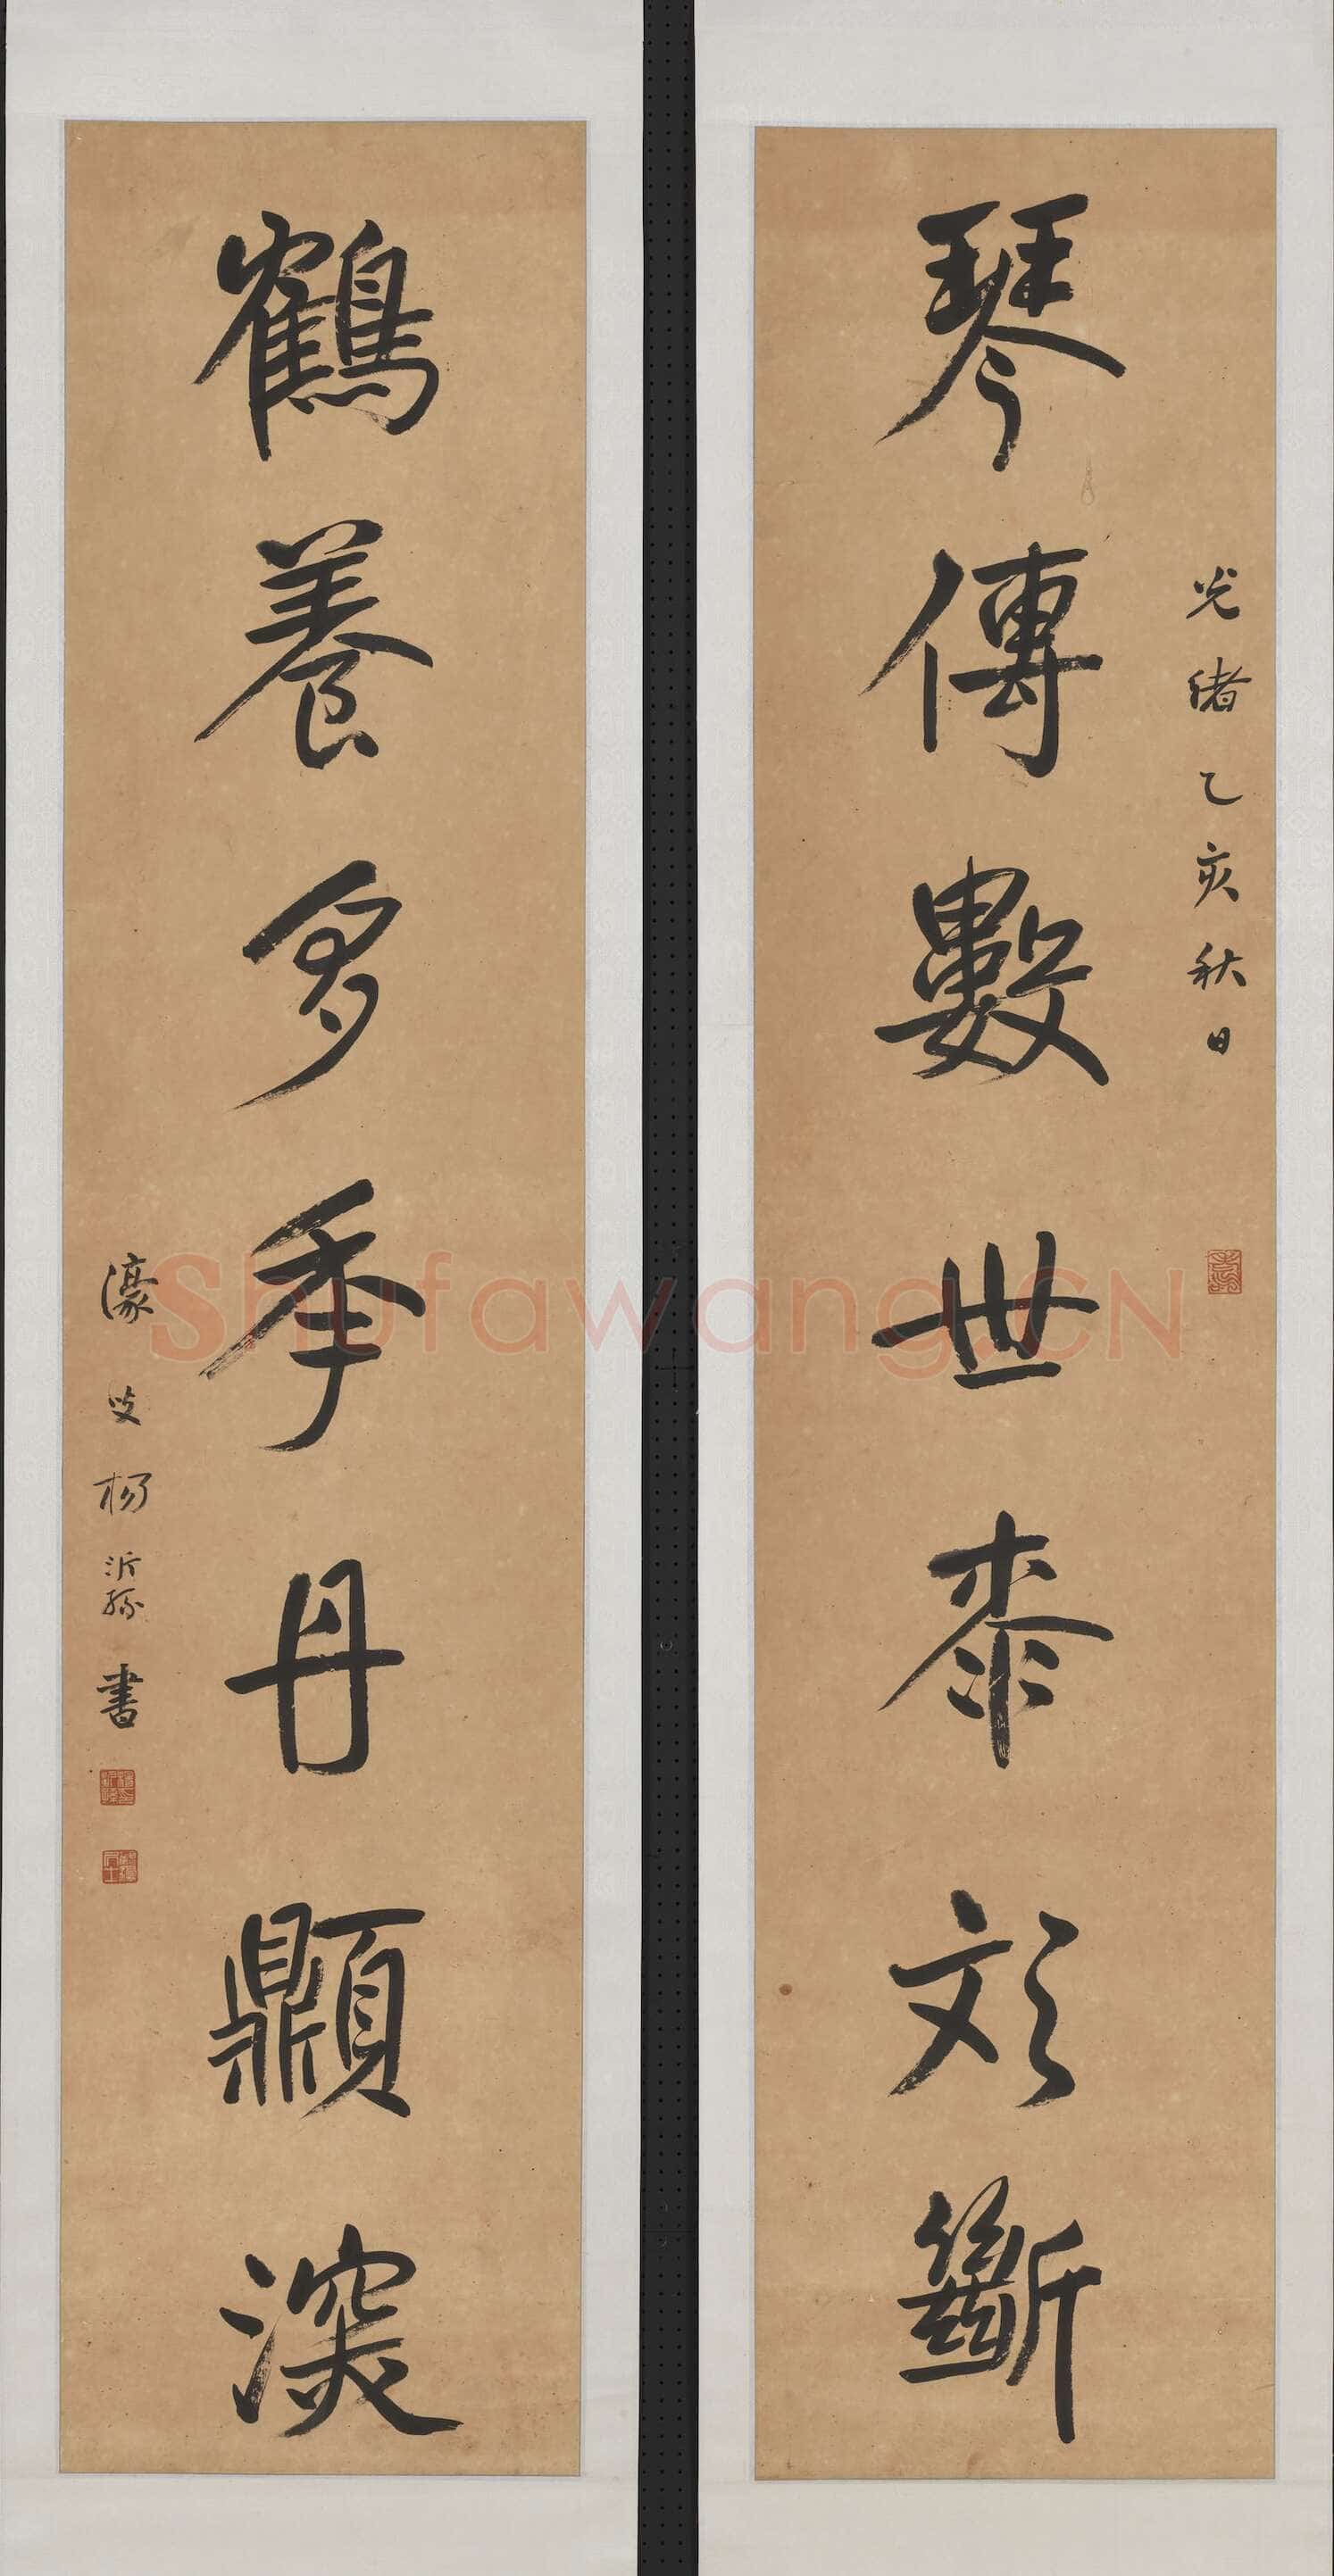 光緒乙亥秋日
琴傳數世桼彣斷
鶴養多秊丹𩕢㴱
濠叟楊沂孫書
Shufawang.CN